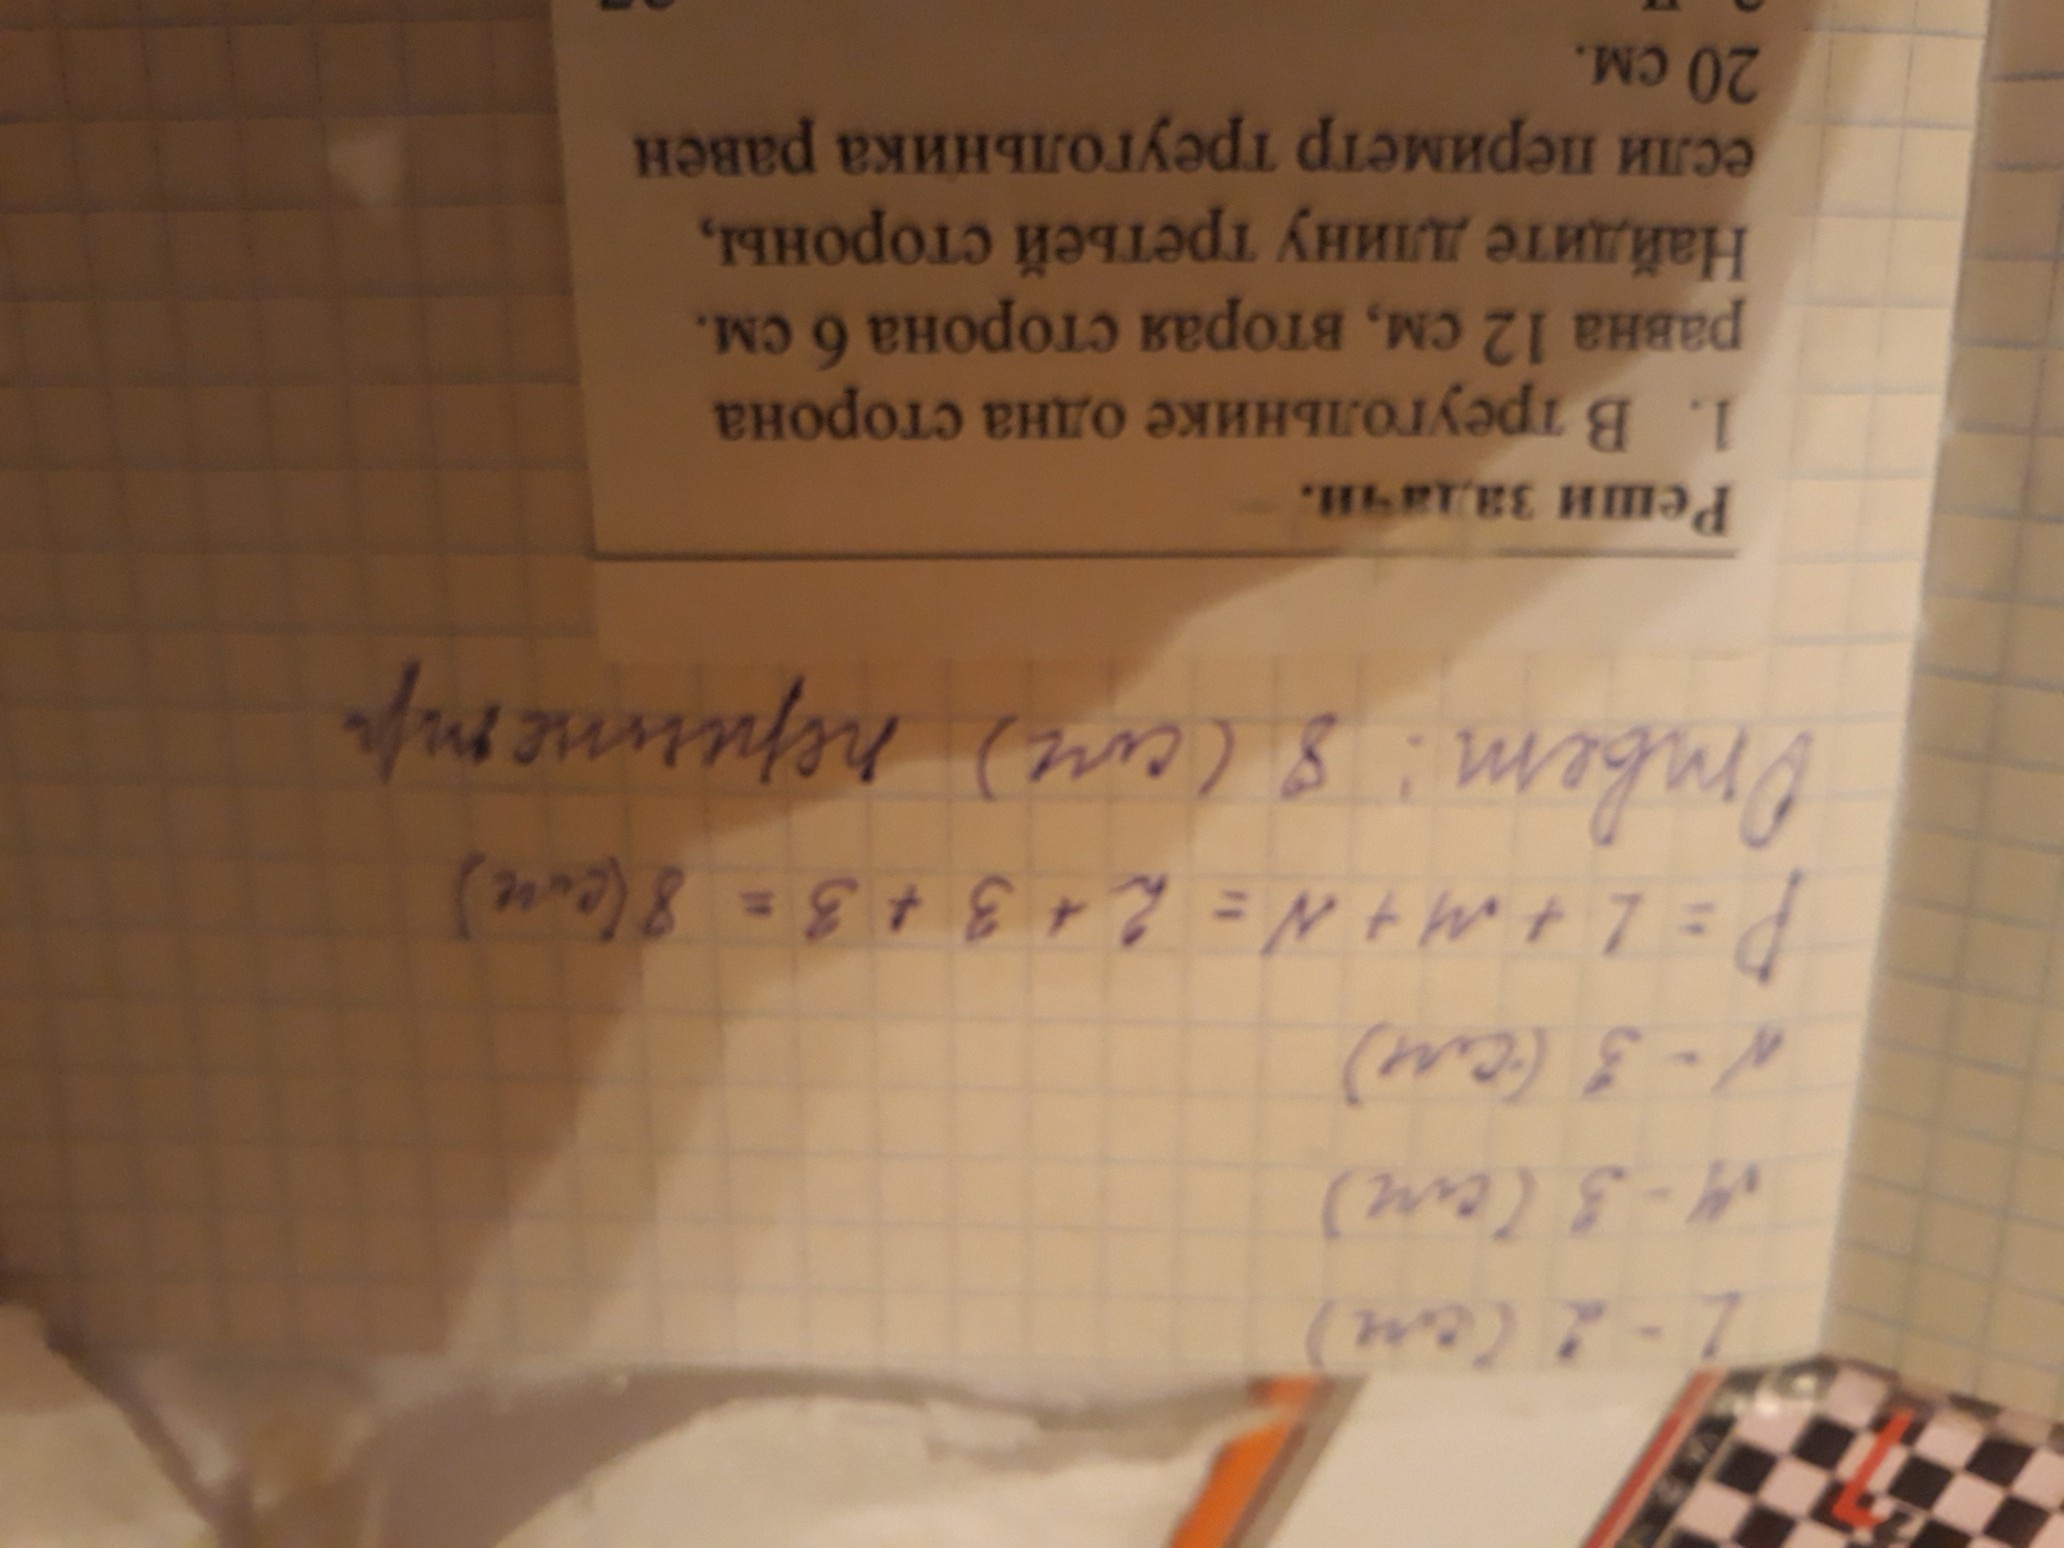 L - 2 (см)
M - 3 (см)
N - 3 (см)
P = L + M + N = 2 + 3 + 3 = 8 (см)
Ответ: 8 (см) периметр
Реши задачи.
1. В треугольнике одна сторона
равна 12 см, вторая сторона 6 см.
Найдите длину третьей стороны,
если периметр треугольника равен
20 см.